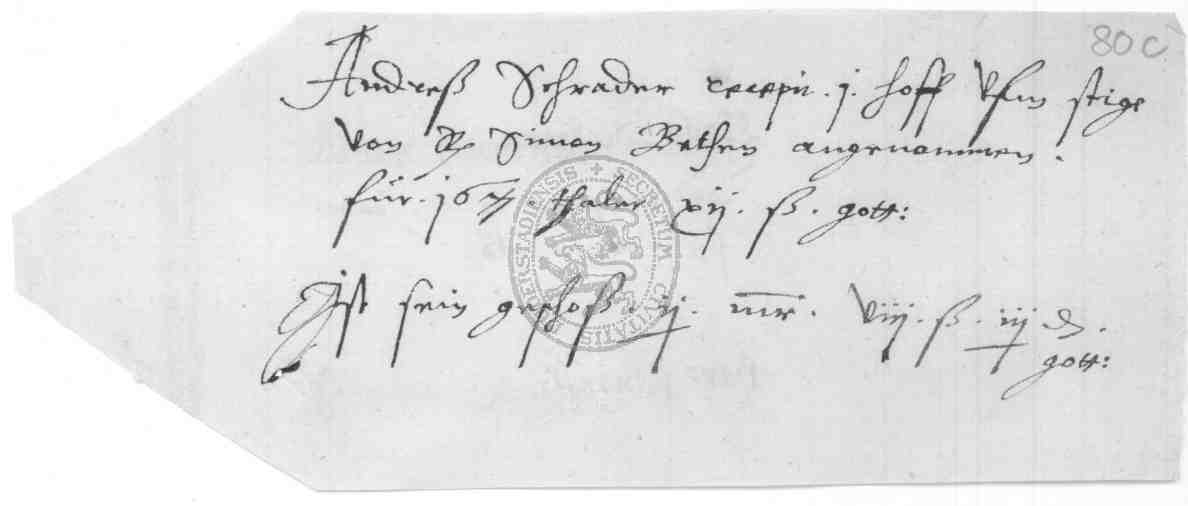 80 c
Andreß Schrader recepit . j . hoff Vfm stige
von Simon Bethen angenommen .
für . 167 thaler xij . ß . gott:
Ist sein geschoß . ij . mr . viij . ß . iij ₰ .
gott:
SECRETUM CIVITATIS ERSTADIENSIS